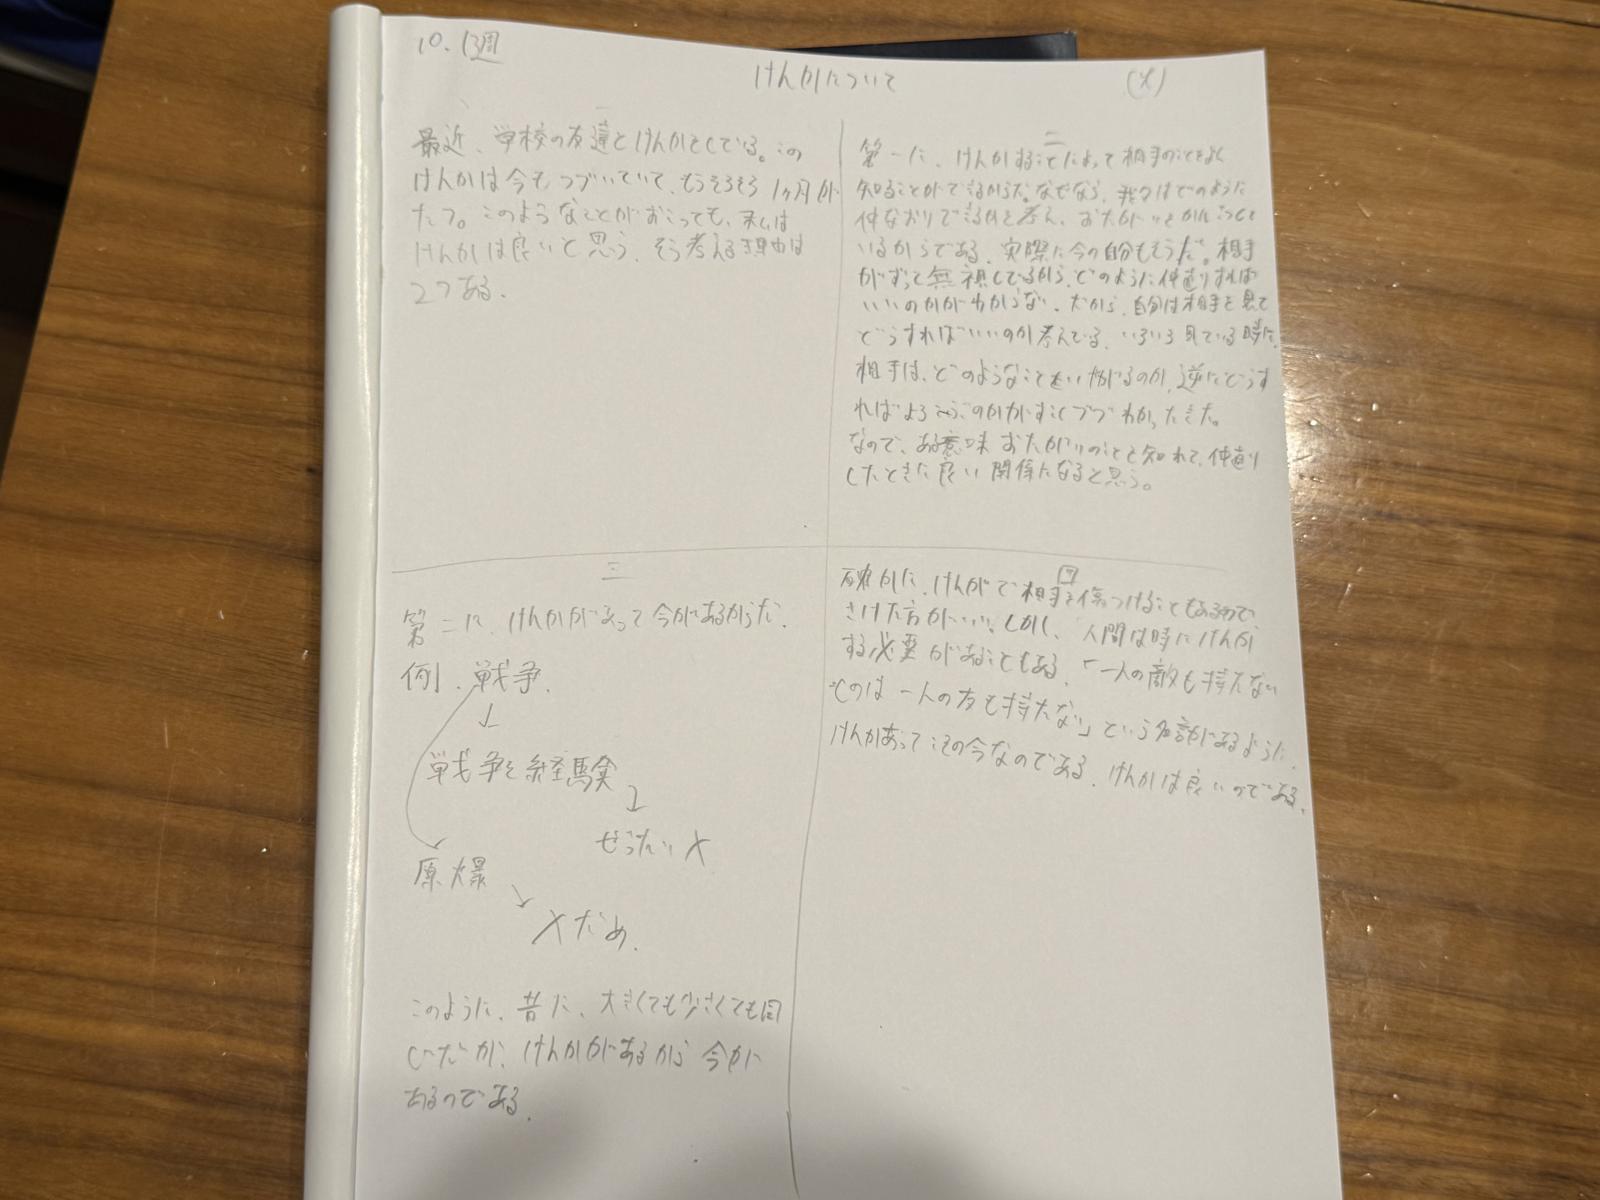 10.13週
けんかについて
(火)
一
最近、学校の友達とけんかをしている。この
けんかは今もつづいていて、もうそろそろ1ヶ月が
たつ。このようなことがおこっても、私は
けんかは良いと思う。そう考える理由は
2つある。
二
第一に、けんかすることによって相手のことをよく
知ることができるからだ。なぜなら、我々はどのように
仲なおりできるかを考え、おたがいをかんさつして
いるからである。実際に今の自分もそうだ。相手
がずっと無視しているから、どのように仲直りすれば
いいのかがわからない。だから、自分は相手を見て
どうすればいいのか考えている。いろいろ見ている時に、
相手は、どのようなことをいやがるのか、逆にどうす
ればよろこぶのかがすこしづつわかってきた。
なので、ある意味おたがいのことを知れて、仲直り
したときに良い関係になると思う。
三
第二に、けんかがあって今があるからだ。
例、戦争、
↓
戦争を経験
↓
ぜったい✕
原爆
↘
✕だめ、
このように、昔に、大きくても少さくても同
じだが、けんかがあるから今が
あるのである。
四
確かに、けんかで相手を傷つけることもあるので、
さけた方がいい。しかし、人間は時にけんか
する必要があることもある。「一人の敵も持たない
ものは一人の友も持たない」という名言があるように、
けんかあってこその今なのである。けんかは良いのである。